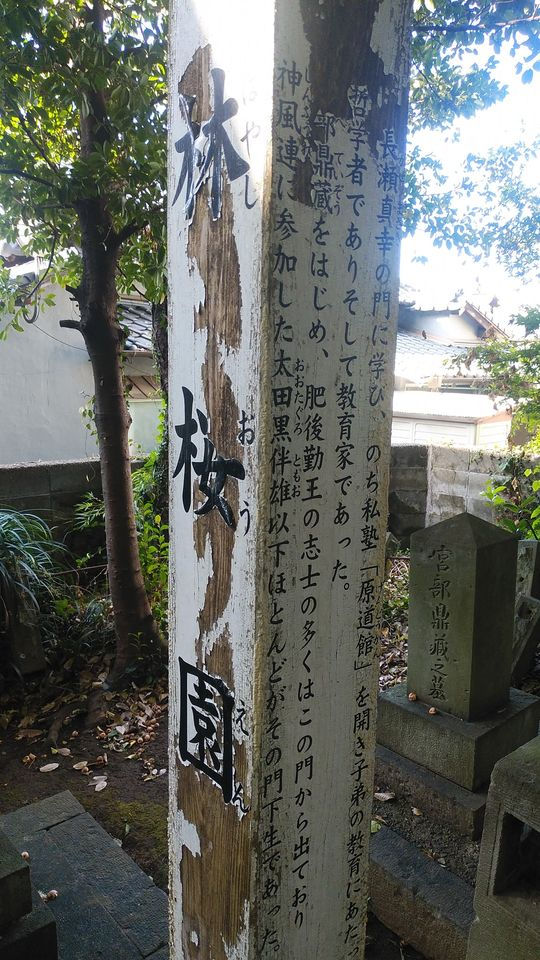 林桜園
はやし おう えん
長瀬真幸の門に学び、のち私塾「原道館」を開き子弟の教育にあたっ
哲学者でありそして教育家であった。
部鼎蔵をはじめ、肥後勤王の志士の多くはこの門から出ており
神風連に参加した太田黒伴雄以下ほとんどがその門下生であった。
おおたぐろ ともお
宮部鼎藏之墓